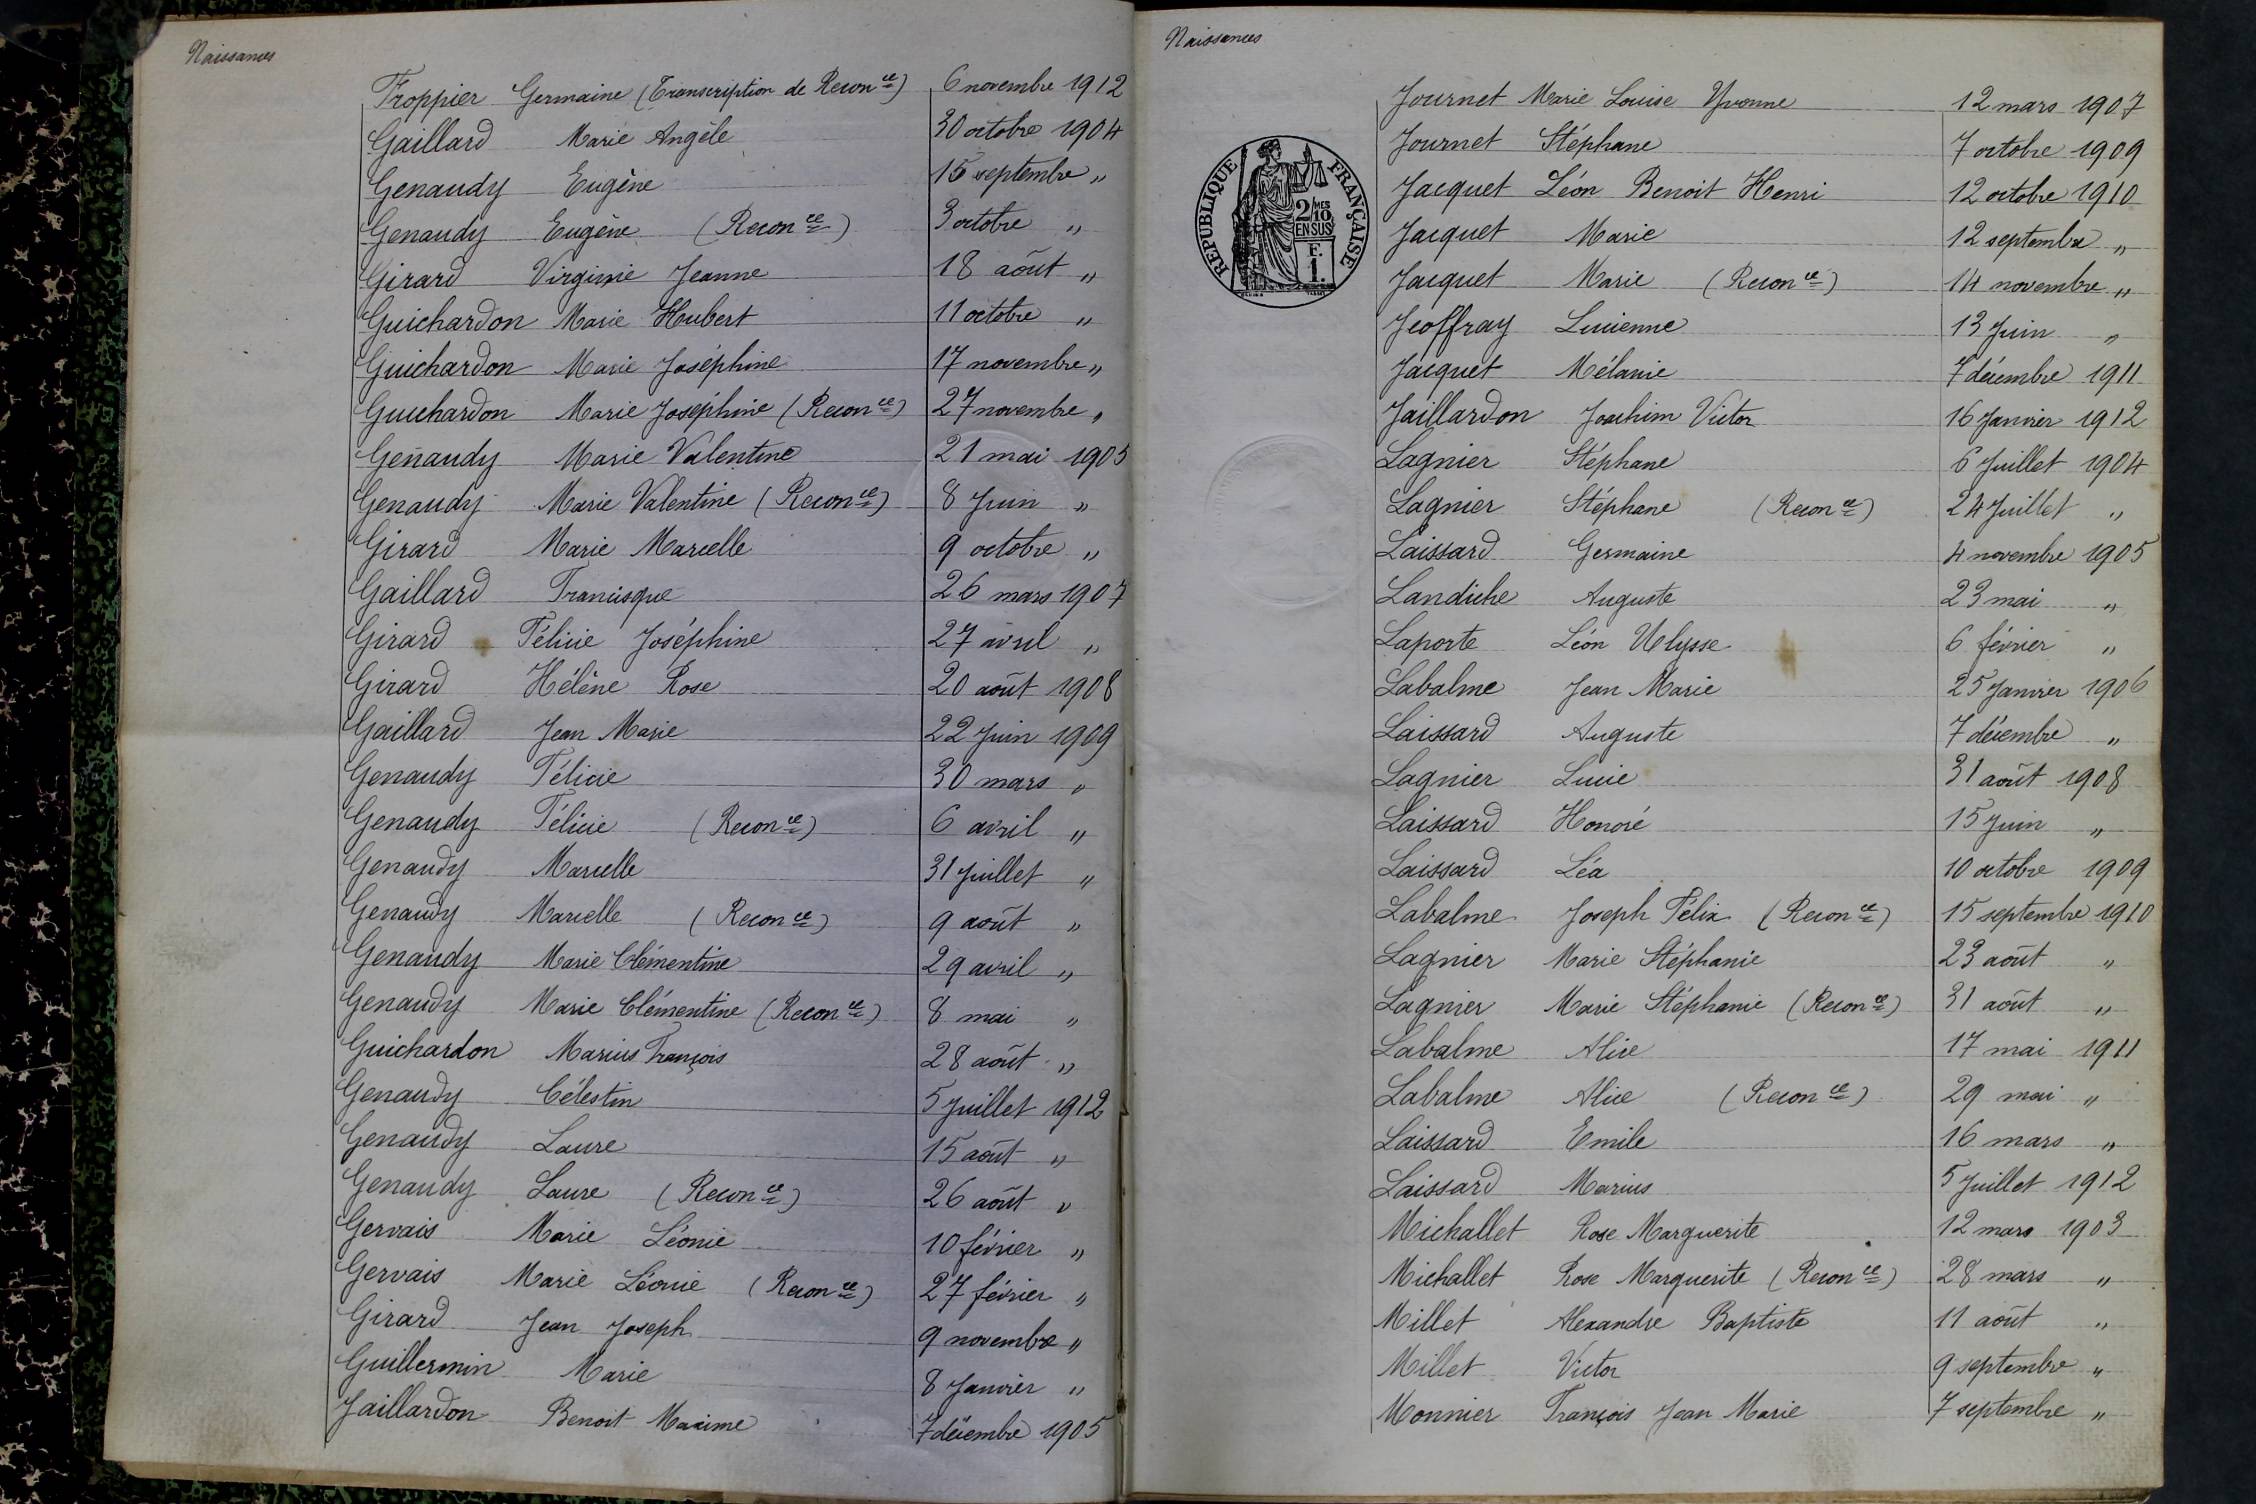 Naissances
Froppier Germaine (Transcription de Recon ce) 6 novembre 1912
Gaillard Marie Angèle 30 octobre 1904
Genaudy Eugène 15 septembre "
Genaudy Eugène (Recon ce) 3 octobre "
Girard Virginie Jeanne 18 août "
Guichardon Marie Hubert 11 octobre "
Guichardon Marie Joséphine 17 novembre "
Guichardon Marie Joséphine (Recon ce) 27 novembre "
Genaudy Marie Valentine 21 mai 1905
Genaudy Marie Valentine (Recon ce) 8 Juin "
Girard Marie Marcelle 9 octobre "
Gaillard Francisque 26 mars 1907
Girard Félicie Joséphine 27 avril "
Girard Hélène Rose 20 août 1908
Gaillard Jean Marie 22 Juin 1909
Genaudy Félicie 30 mars "
Genaudy Félicie (Recon ce) 6 avril "
Genaudy Marcelle 31 Juillet "
Genaudy Marcelle (Recon ce) 9 août "
Genaudy Marie Clémentine 29 avril "
Genaudy Marie Clémentine (Recon ce) 8 mai "
Guichardon Marius François 28 août "
Genaudy Célestin 5 Juillet 1912
Genaudy Laure 15 août "
Genaudy Laure (Recon ce) 26 août "
Gervais Marie Léonie 10 février "
Gervais Marie Léonie (Recon ce) 27 février "
Girard Jean Joseph 9 novembre "
Guillermin Marie 8 Janvier "
Jaillardon Benoit Maxime 7 décembre 1905
Naissances
RÉPUBLIQUE FRANÇAISE
2/10 MES
EN SUS
F.
1.
Journet Marie Louise Yvonne 12 mars 1907
Journet Stéphane 7 octobre 1909
Jacquet Léon Benoit Henri 12 octobre 1910
Jacquet Marie 12 septembre "
Jacquet Marie (Recon ce) 14 novembre "
Jeoffray Lucienne 13 Juin "
Jacquet Mélanie 7 décembre 1911
Jaillardon Joachim Victor 16 Janvier 1912
Lagnier Stéphane 6 Juillet 1904
Lagnier Stéphane (Recon ce) 24 Juillet "
Laissard Germaine 4 novembre 1905
Landiche Auguste 23 mai "
Laporte Léon Ulysse 6 février "
Labalme Jean Marie 25 Janvier 1906
Laissard Auguste 7 décembre "
Lagnier Lucie 31 août 1908
Laissard Honoré 15 Juin "
Laissard Léa 10 octobre 1909
Labalme Joseph Félix (Recon ce) 15 septembre 1910
Lagnier Marie Stéphanie 23 août "
Lagnier Marie Stéphanie (Recon ce) 31 août "
Labalme Alice 17 mai 1911
Labalme Alice (Recon ce) 29 mai "
Laissard Emile 16 mars "
Laissard Marius 5 Juillet 1912
Michallet Rose Marguerite 12 mars 1903
Michallet Rose Marguerite (Recon ce) 28 mars "
Millet Alexandre Baptiste 11 août "
Millet Victor 9 septembre "
Monnier François Jean Marie 7 septembre "